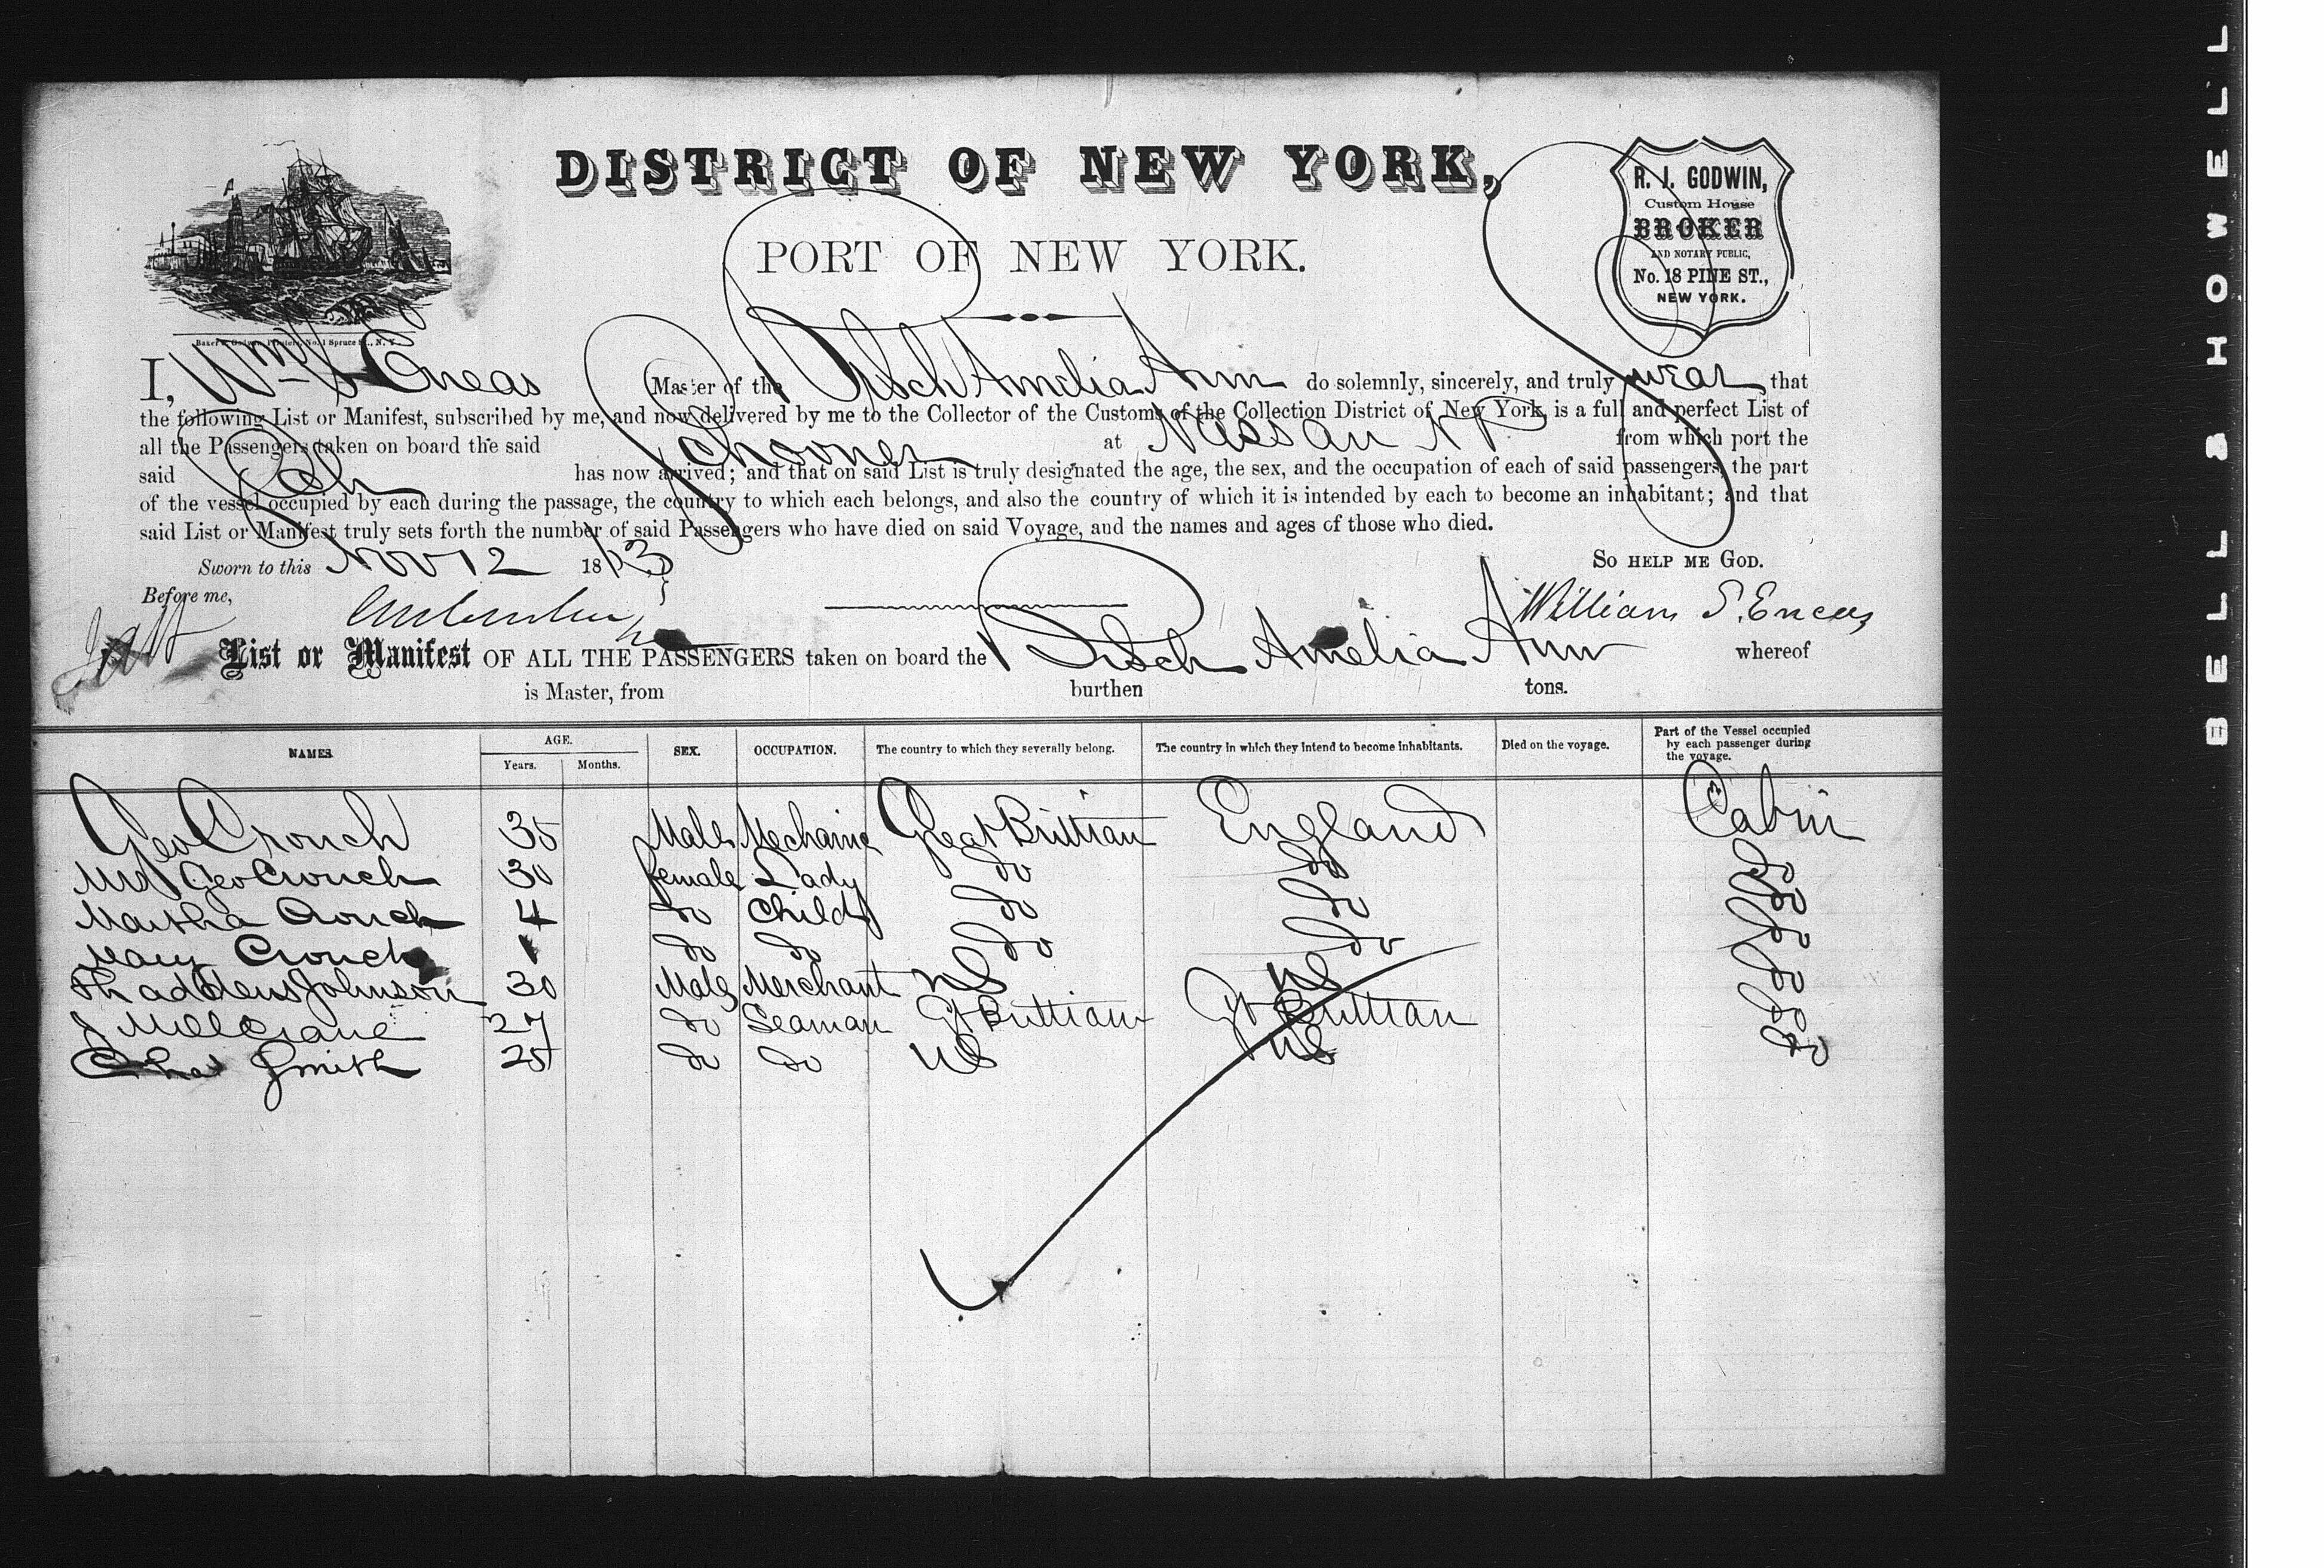 DISTRICT OF NEW YORK,
PORT OF NEW YORK.
R. J. GODWIN,
Custom House
BROKER
AND NOTARY PUBLIC,
No. 18 PINE ST.,
NEW YORK.
Baker & Godwin, Printers, No. 1 Spruce St., N. Y.
I, Wm S Eneas Master of the Brsch Amelia Ann do solemnly, sincerely, and truly swear that
the following List or Manifest, subscribed by me, and now delivered by me to the Collector of the Customs of the Collection District of New York, is a full and perfect List of
all the Passengers taken on board the said Schooner at Nassau N P from which port the
said Sch has now arrived; and that on said List is truly designated the age, the sex, and the occupation of each of said passengers, the part
of the vessel occupied by each during the passage, the country to which each belongs, and also the country of which it is intended by each to become an inhabitant; and that
said List or Manifest truly sets forth the number of said Passengers who have died on said Voyage, and the names and ages of those who died.
Sworn to this Nov 12 1873 SO HELP ME GOD.
Before me, William S. Eneas
List or Manifest OF ALL THE PASSENGERS taken on board the Brsch Amelia Ann whereof
is Master, from burthen tons.
NAMES. AGE. Years. Months. SEX. OCCUPATION. The country to which they severally belong. The country in which they intend to become inhabitants. Died on the voyage. Part of the Vessel occupied by each passenger during the voyage.
Geo Crouch 35 Male Mechanic Great Brittian England Cabin
Mrs Geo Crouch 30 female Lady do do do
Martha Crouch 4 do Child do do do
Mary Crouch 1 do do do do do
Thaddeus Johnson 30 Male Merchant US US do
J 27 do Seaman Gt Brittian Gt Brittian do
Chas Smith 25 do do US US do
BELL & HOWELL